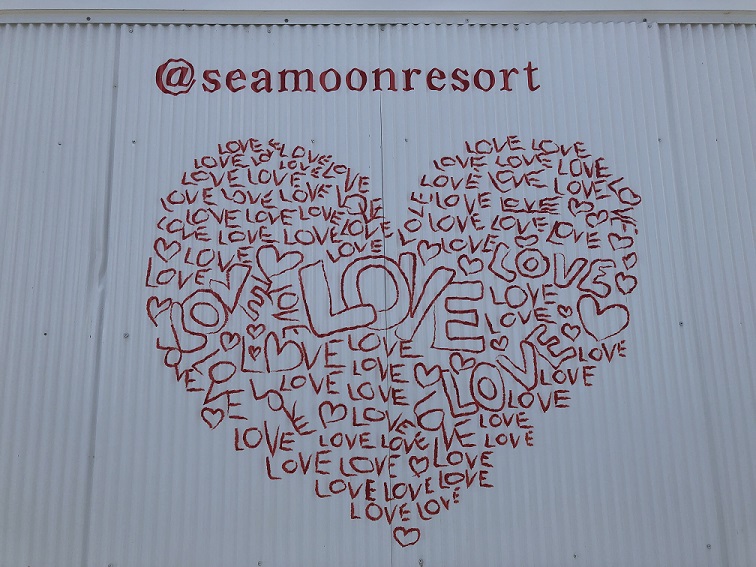 @seamoonresort
LOVE LOVE LOVE LOVE
LOVE LOVE LOVE LOVE LOVE
LOVE LOVE LOVE LOVE LOVE LOVE
LOVE LOVE LOVE LOVE LOVE LOVE
LOVE LOVE LOVE LOVE LOVE LOVE
LOVE LOVE LOVE LOVE LOVE LOVE
LOVE LOVE LOVE
LOVE LOVE LOVE
LOVE LOVE LOVE
LOVE LOVE
LOVE LOVE LOVE LOVE
LOVE LOVE LOVE LOVE
LOVE LOVE LOVE LOVE
LOVE LOVE LOVE
LOVE LOVE LOVE LOVE LOVE
LOVE LOVE LOVE
LOVE LOVE LOVE
LOVE LOVE